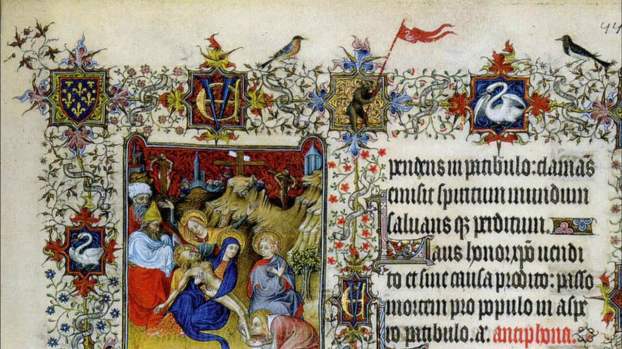 pendens in patibulo: clamās
emisit spiritum mundum
saluans q; perditum.
Laus honor xp̄o uendi
to et sine causa prodito: passo
mortem pro populo in aspe
ro patibulo. a. antiphona.